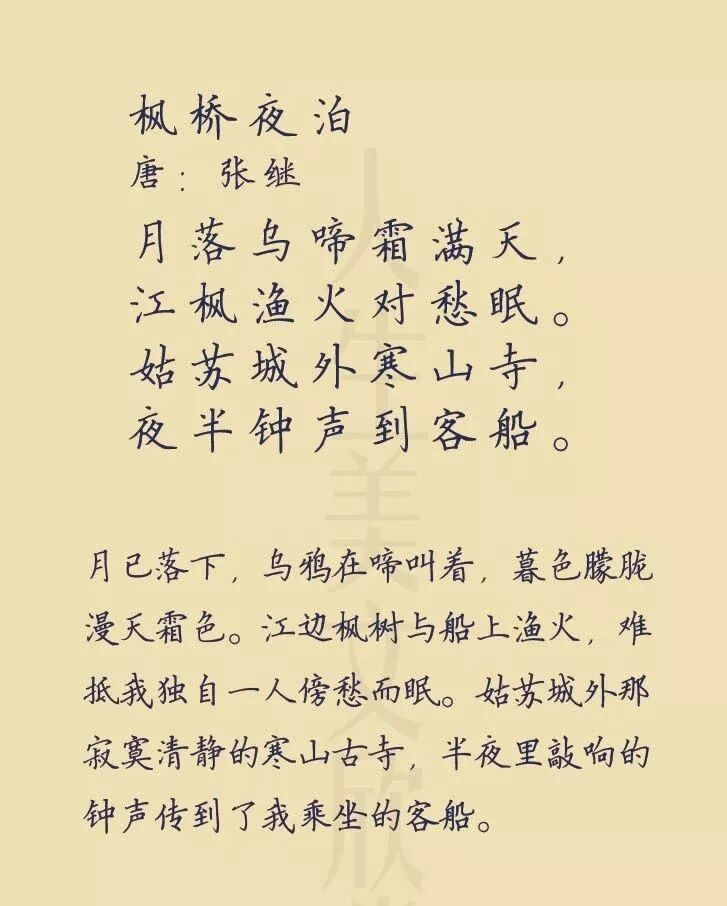 枫桥夜泊
唐：张继
月落乌啼霜满天，
江枫渔火对愁眠。
姑苏城外寒山寺，
夜半钟声到客船。
月已落下，乌鸦在啼叫着，暮色朦胧
漫天霜色。江边枫树与船上渔火，难
抵我独自一人傍愁而眠。姑苏城外那
寂寞清静的寒山古寺，半夜里敲响的
钟声传到了我乘坐的客船。
人生美文欣